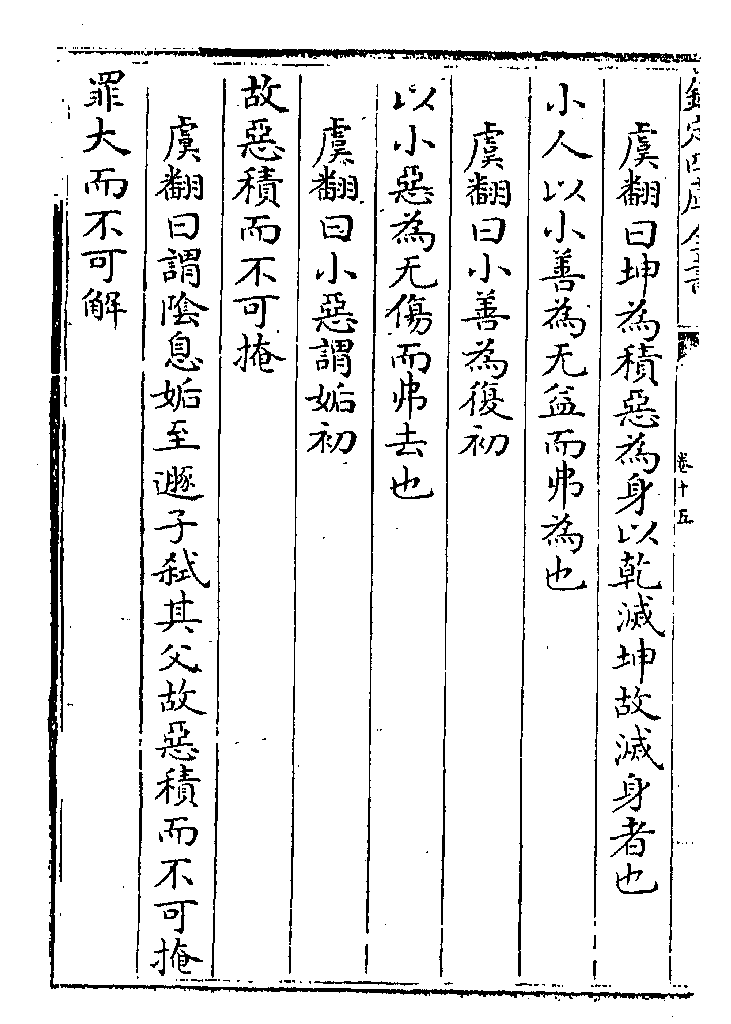 欽定四庫全書
卷十五
虞翻曰坤為積惡為身以乾滅坤故滅身者也
小人以小善為无益而弗為也
虞翻曰小善為復初
以小惡為无傷而弗去也
虞翻曰小惡謂姤初
故惡積而不可掩
虞翻曰謂陰息姤至遯子弑其父故惡積而不可掩
罪大而不可解